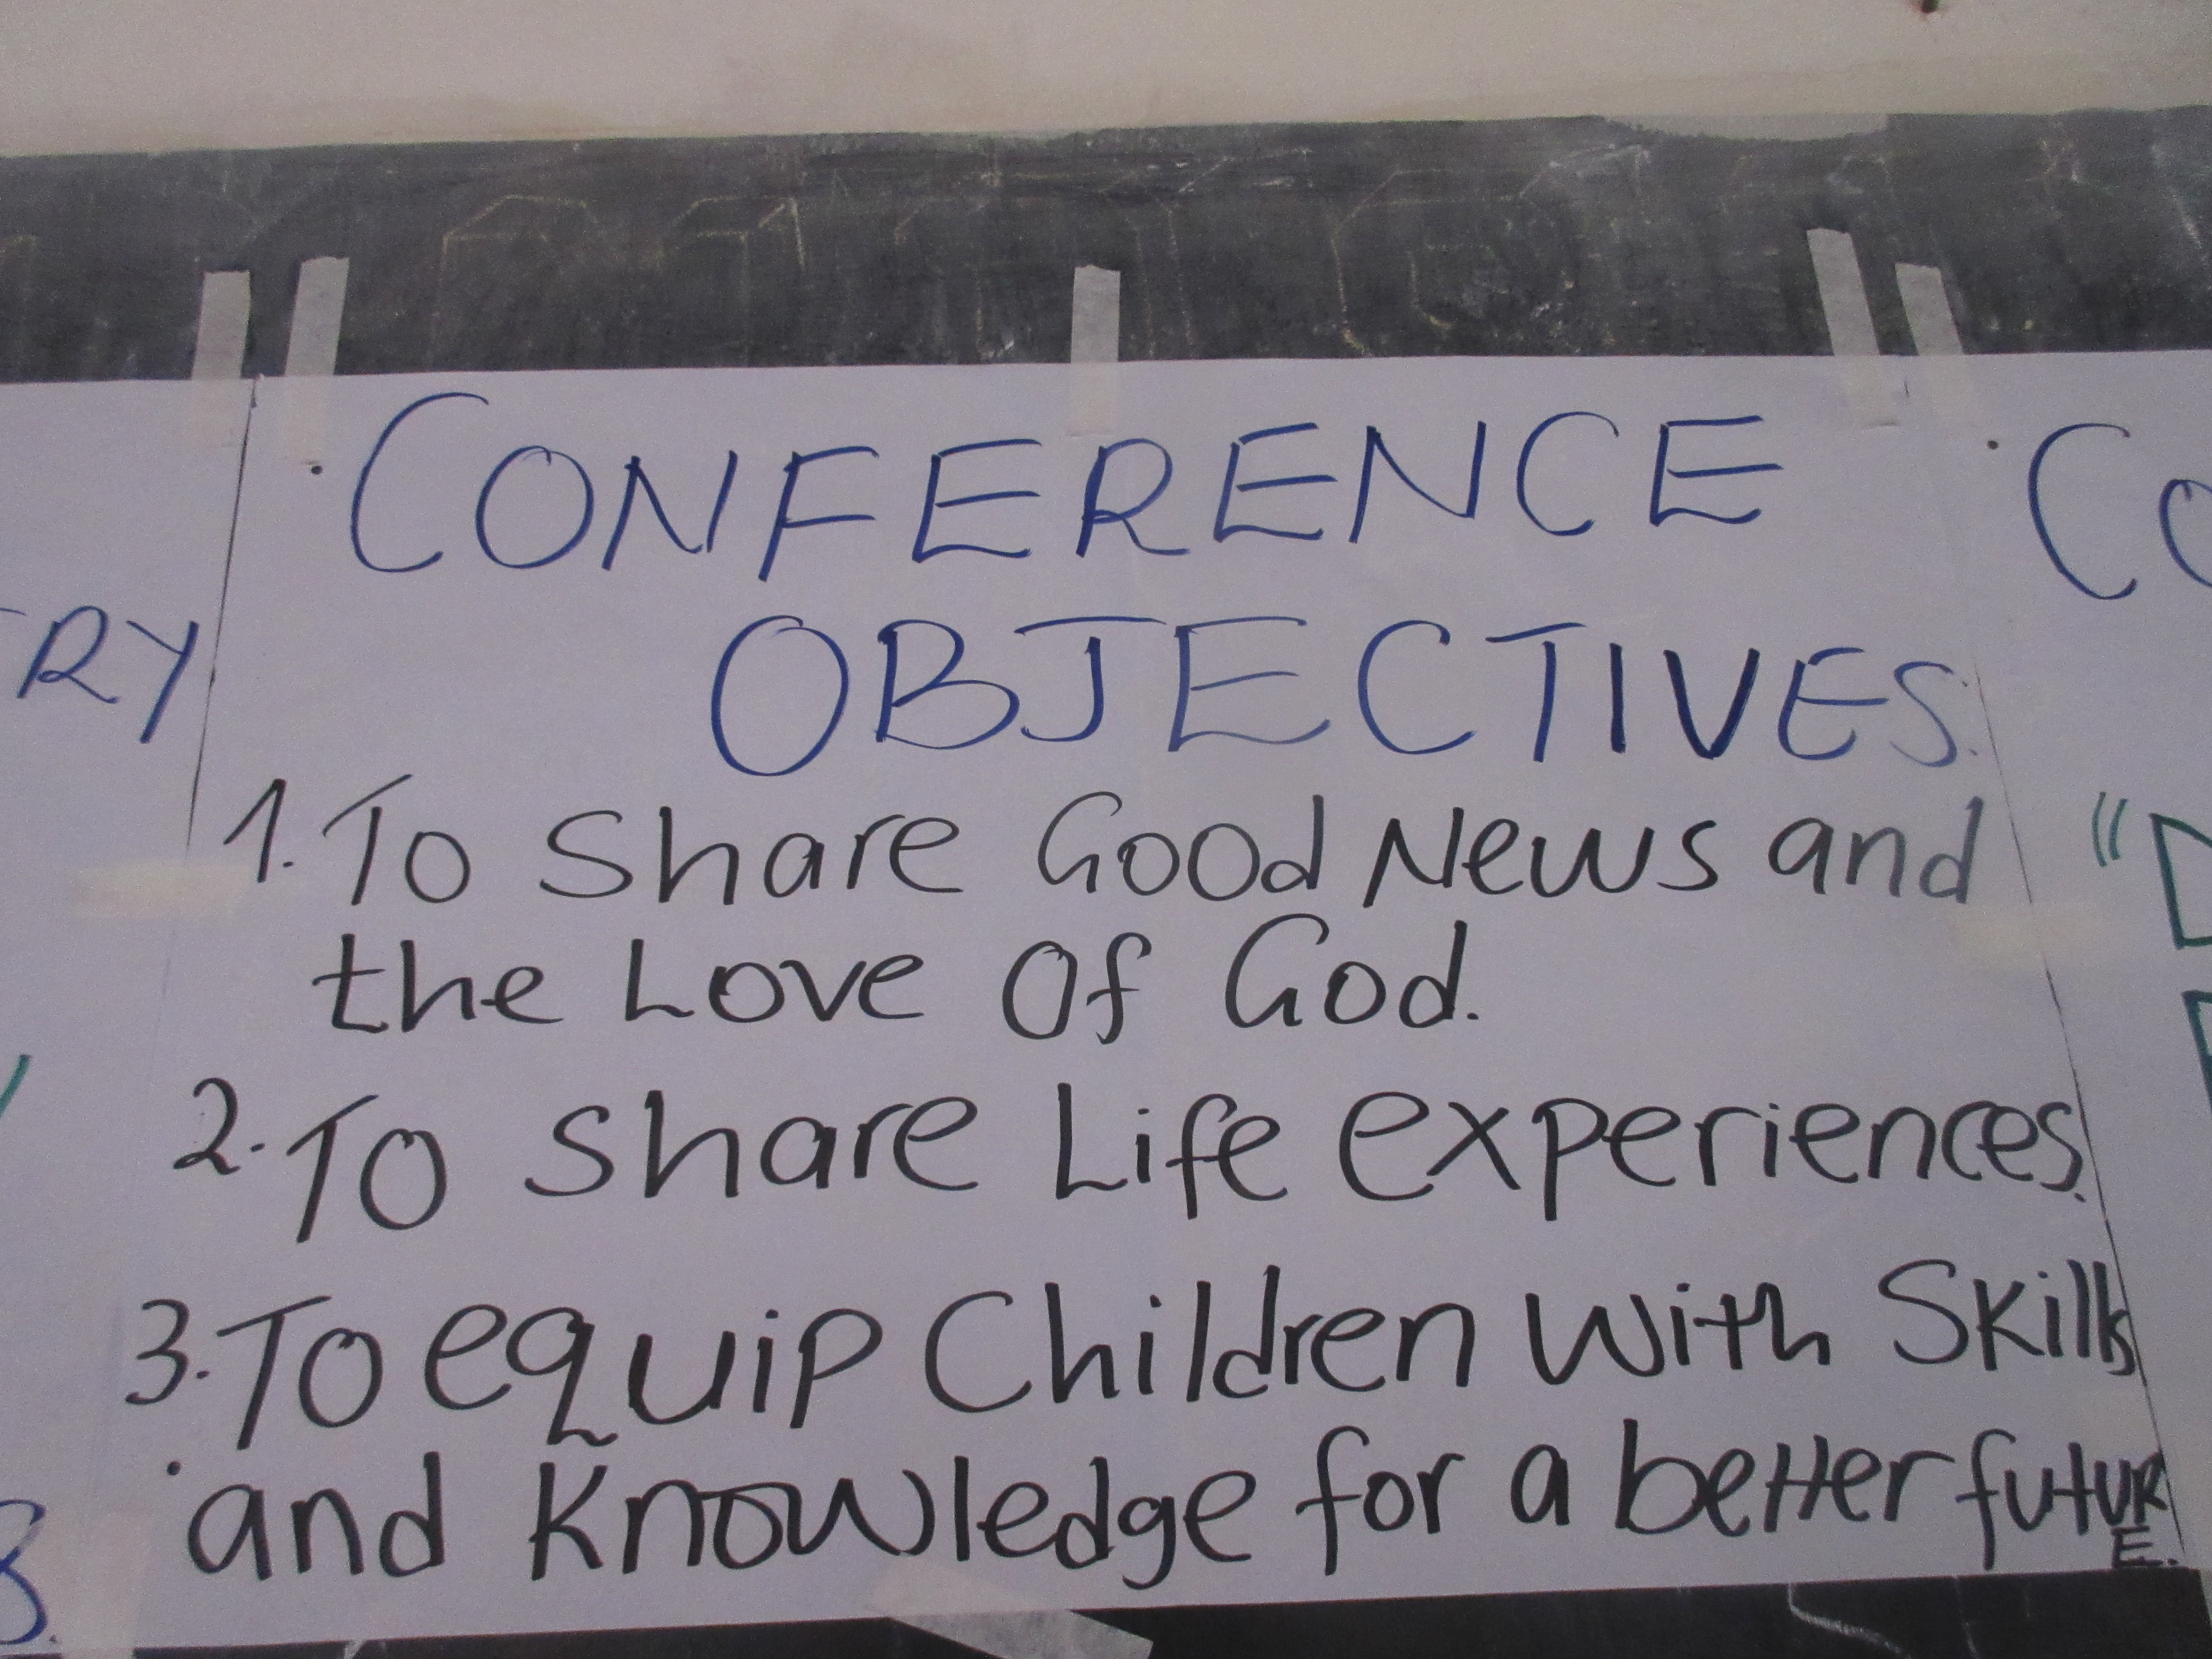 CONFERENCE
OBJECTIVES.
1. To Share Good News and
the Love Of God.
2. To share Life experiences.
3. To equip Children With Skills
and Knowledge for a better futur
E.
RY
CO
"D
8.